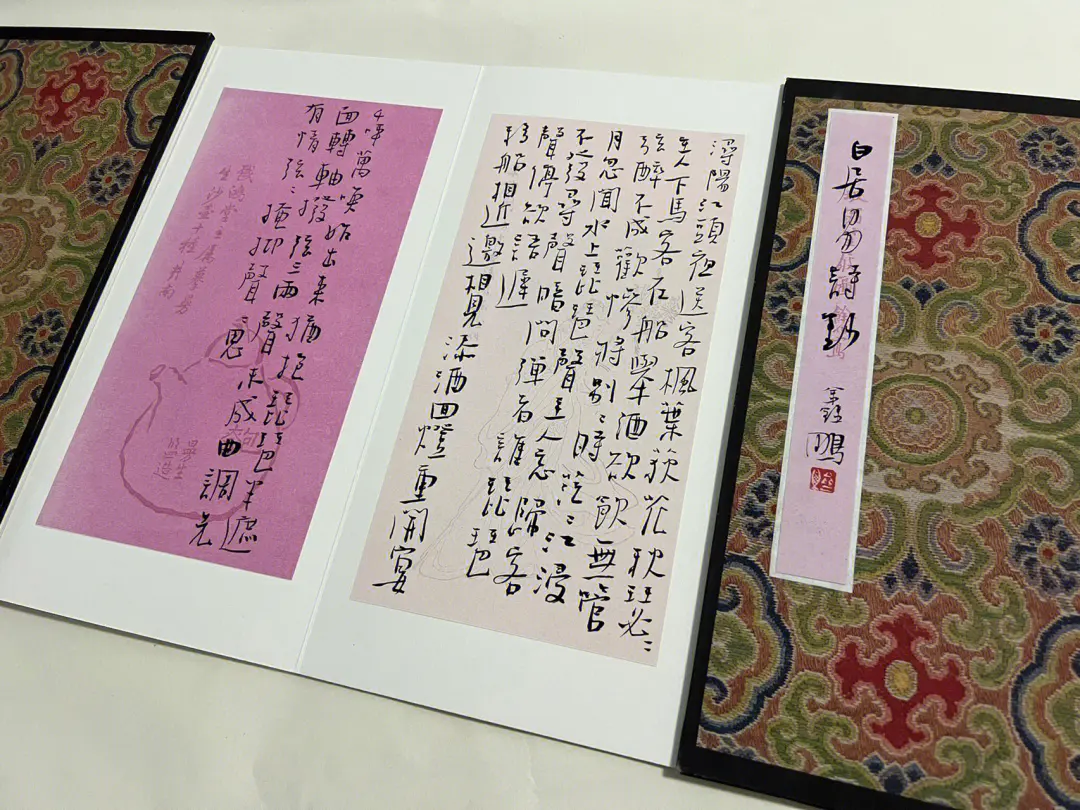 白居易詩鈔
鵬
潯陽江頭夜送客楓葉荻花秋瑟〻
主人下馬客在船舉酒欲飲無管
弦醉不成歡慘將別〻時茫〻江浸
月忽聞水上琵琶聲主人忘歸客
不發尋聲暗問彈者誰琵琶
聲停欲語遲
移船相近邀相見添酒回燈重開宴
千喚萬喚始出來猶抱琵琶半遮
面轉軸撥弦三兩聲未成曲調先
有情弦〻掩抑聲〻思